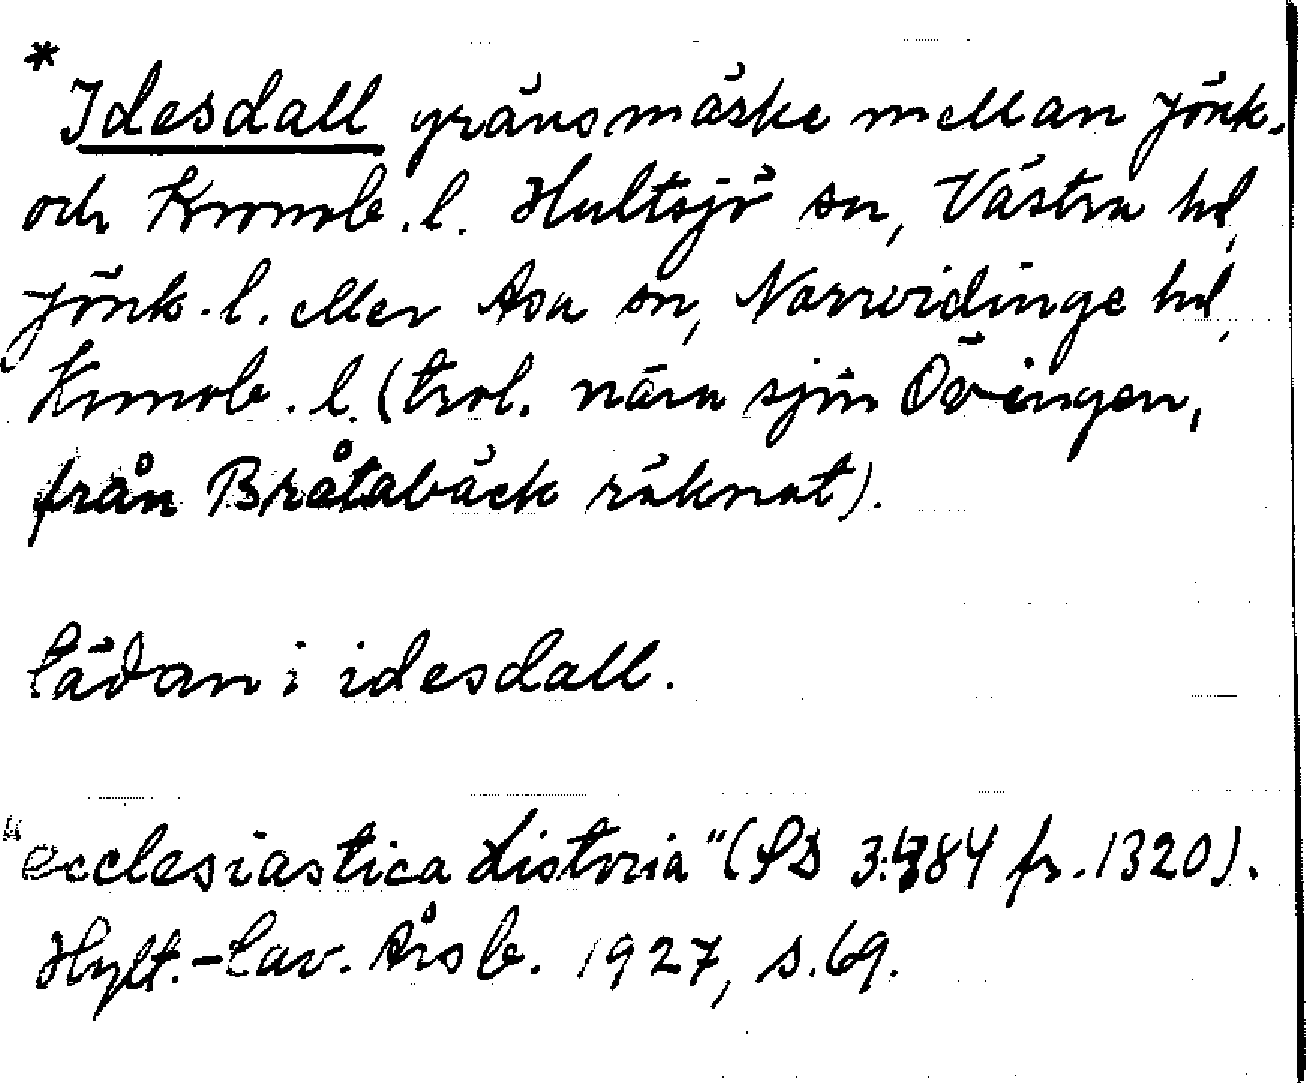 * Idesdall gränsmärke mellan Jönk.
och Kronob. l. Hultsjö sn, Västra hd,
Jönk. l. eller Asa sn, Norrvidinge hd,
Kronob. l. (trol. nära sjön Övingen,
från Bråtabäck räknat).
sädan i idesdall.
"ecclesiastica distoria" (SD 3:484 fr. 1320).
Hylt.-Cav. Årsb. 1927, s. 69.